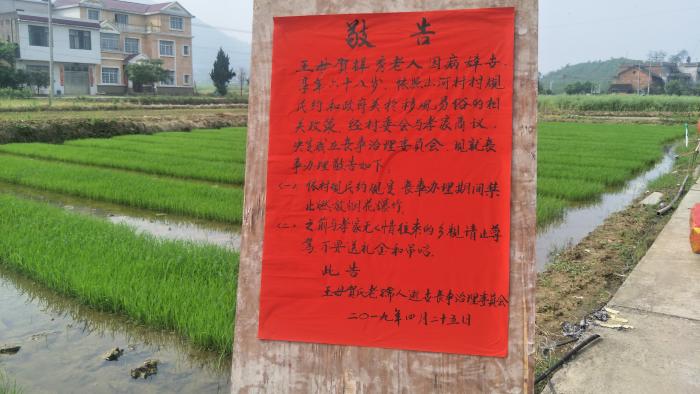 敬告
王母贺择秀老人因病辞世
享年六十八岁.依照山河村村规
民约和政府关于移风易俗的相
关政策,经村委会与孝家商议,
决定成立丧事治理委员会,现就丧
事办理敬告如下:
(一)依村规民约规定丧事办理期间禁
止燃放烟花爆竹
(二)之前与孝家无人情往来的乡亲请止尊
驾不要送礼金和吊唁.
此告
王母贺氏老孺人逝世丧事治理委员会
二〇一九年四月二十五日